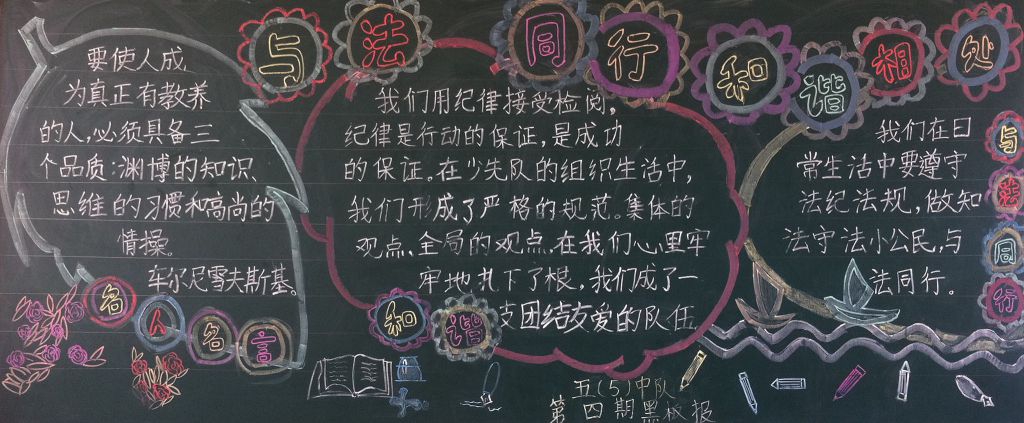 与法同行 和谐相处
要使人成
为真正有教养
的人,必须具备三
个品质:渊博的知识、
思维的习惯和高尚的
情操。
车尔尼雪夫斯基。
名人名言
我们用纪律接受检阅,
纪律是行动的保证,是成功
的保证。在少先队的组织生活中,
我们形成了严格的规范。集体的
观点,全局的观点,在我们心里牢
牢地扎下了根,我们成了一
支团结友爱的队伍
和谐
我们在日
常生活中要遵守
法纪法规,做知
法守法小公民,与
法同行。
与法同行
五(5)中队
第四期黑板报